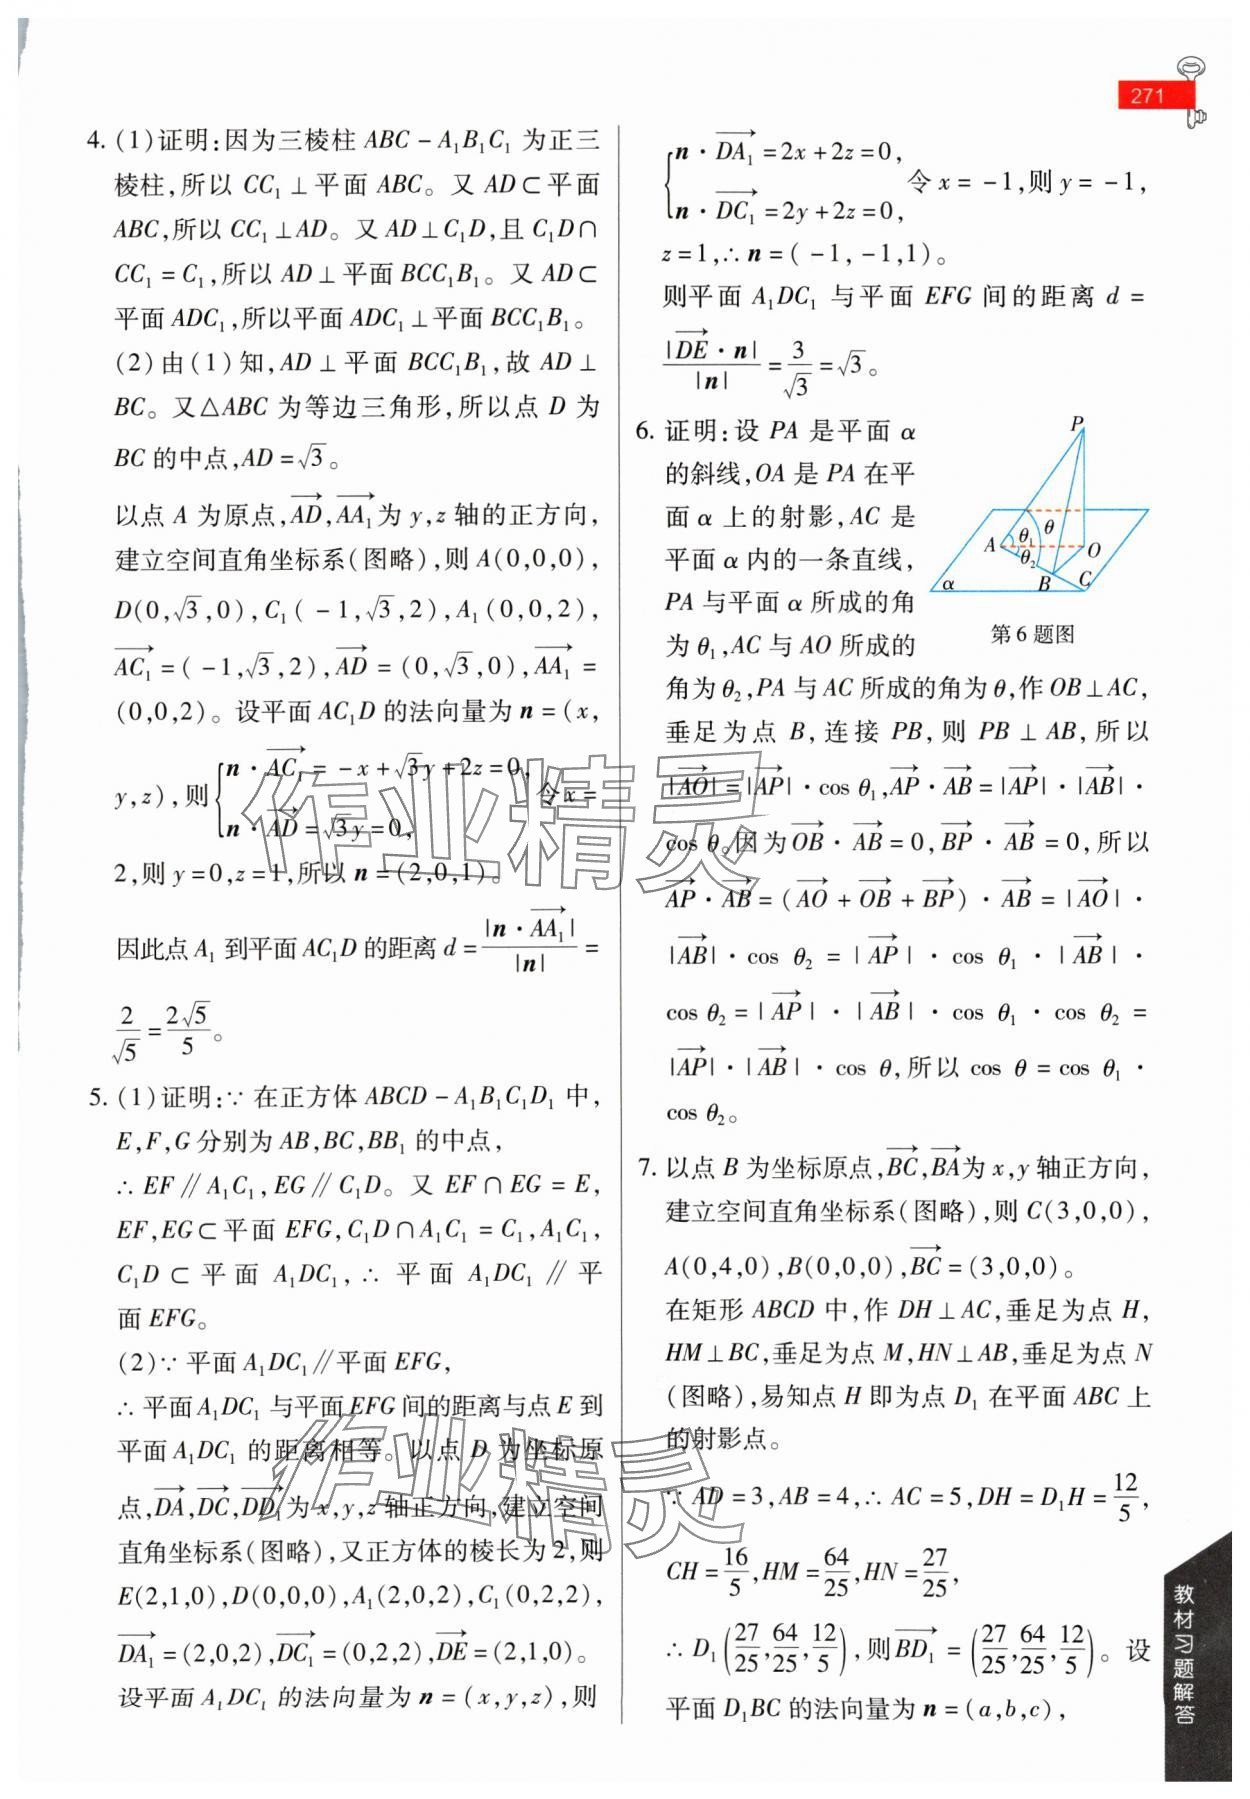 271
4. (1)证明:因为三棱柱 ABC - A₁B₁C₁ 为正三
棱柱,所以 CC₁⊥平面 ABC。又 AD⊂平面
ABC,所以 CC₁⊥AD。又 AD⊥C₁D,且 C₁D∩
CC₁ = C₁,所以 AD⊥平面BCC₁B₁。又 AD⊂
平面 ADC₁,所以平面 ADC₁⊥平面 BCC₁B₁。
(2)由(1)知,AD⊥平面 BCC₁B₁,故 AD⊥
BC。又△ABC 为等边三角形,所以点 D 为
BC 的中点,AD = √3。
以点 A 为原点,→AD,→AA₁为 y,z 轴的正方向,
建立空间直角坐标系(图略),则 A(0,0,0),
D(0,√3,0),C₁(-1,√3,2),A₁(0,0,2),
→AC₁ = (-1,√3,2),→AD = (0,√3,0),→AA₁ =
(0,0,2)。设平面 AC₁D 的法向量为 n = (x,
y,z),则{n·→AC₁ = -x+√3y+2z=0, n·→AD = √3y=0, 令 x =
2,则 y=0,z=1,所以 n=(2,0,1)。
因此点 A₁ 到平面 AC₁D 的距离 d = |n·→AA₁|/|n| =
2/√5 = 2√5/5。
5. (1)证明:∵ 在正方体 ABCD - A₁B₁C₁D₁ 中,
E,F,G 分别为 AB,BC,BB₁ 的中点,
∴ EF∥A₁C₁,EG∥C₁D。又 EF∩EG = E,
EF,EG⊂平面 EFG,C₁D∩A₁C₁ = C₁,A₁C₁,
C₁D⊂平面 A₁DC₁,∴ 平面 A₁DC₁∥平
面 EFG。
(2)∵ 平面 A₁DC₁∥平面 EFG,
∴ 平面 A₁DC₁ 与平面 EFG 间的距离与点 E 到
平面 A₁DC₁ 的距离相等。以点 D 为坐标原
点,→DA,→DC,→DD₁为 x,y,z 轴正方向,建立空间
直角坐标系(图略),又正方体的棱长为 2,则
E(2,1,0),D(0,0,0),A₁(2,0,2),C₁(0,2,2),
→DA₁ = (2,0,2),→DC₁ = (0,2,2),→DE = (2,1,0)。
设平面 A₁DC₁ 的法向量为 n = (x,y,z),则
{n·→DA₁ = 2x+2z=0, n·→DC₁ = 2y+2z=0, 令 x = -1,则 y = -1,
z=1,∴ n = (-1,-1,1)。
则平面 A₁DC₁ 与平面 EFG 间的距离 d =
|→DE·n|/|n| = 3/√3 = √3。
6. 证明:设 PA 是平面 α
的斜线,OA 是 PA 在平
面 α 上的射影,AC 是
平面 α 内的一条直线,
PA 与平面 α 所成的角
为 θ₁,AC 与 AO 所成的
角为 θ₂,PA 与 AC 所成的角为 θ,作 OB⊥AC,
垂足为点 B,连接 PB,则 PB⊥AB,所以
|→AO| = |→AP|·cos θ₁,→AP·→AB = |→AP|·|→AB|·
cos θ。因为→OB·→AB = 0,→BP·→AB = 0,所以
→AP·→AB = (→AO + →OB + →BP)·→AB = |→AO|·
|→AB|·cos θ₂ = |→AP|·cos θ₁·|→AB|·
cos θ₂ = |→AP|·|→AB|·cos θ₁·cos θ₂ =
|→AP|·|→AB|·cos θ,所以 cos θ = cos θ₁·
cos θ₂。
P
A
θ₁
θ
θ₂
O
B
C
α
第 6 题图
7. 以点 B 为坐标原点,→BC,→BA为 x,y 轴正方向,
建立空间直角坐标系(图略),则 C(3,0,0),
A(0,4,0),B(0,0,0),→BC = (3,0,0)。
在矩形 ABCD 中,作 DH⊥AC,垂足为点 H,
HM⊥BC,垂足为点 M,HN⊥AB,垂足为点 N
(图略),易知点 H 即为点 D₁ 在平面 ABC 上
的射影点。
∵ AD = 3,AB = 4,∴ AC = 5,DH = D₁H = 12/5,
CH = 16/5,HM = 64/25,HN = 27/25,
∴ D₁(27/25,64/25,12/5),则→BD₁ = (27/25,64/25,12/5)。设
平面 D₁BC 的法向量为 n = (a,b,c),
教材习题解答
作业精灵
作业精灵